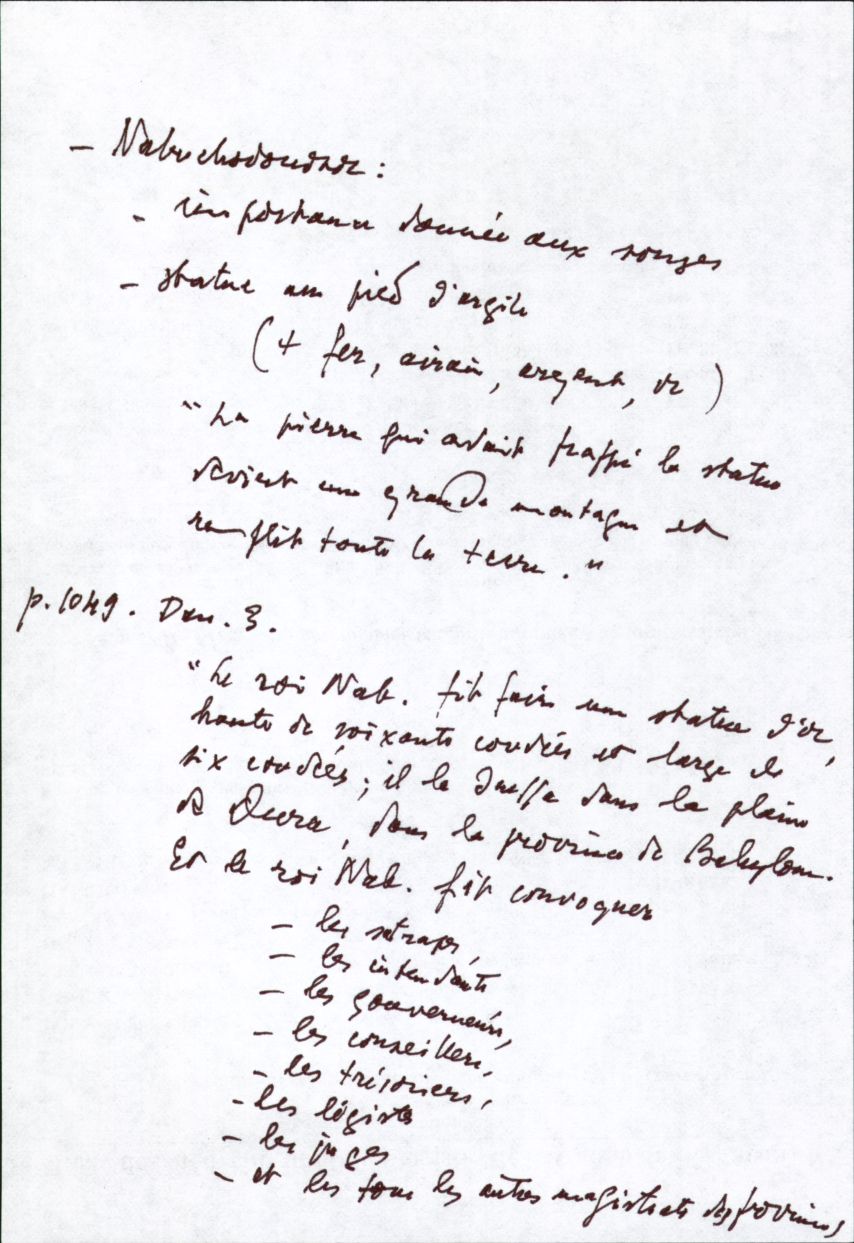 – Nabuchodonosor :
- importance donnée aux songes
- statue aux pieds d'argile
(+ fer, airain, argent, or )
"La pierre qui avait frappé la statue
devient une grande montagne et
remplit toute la terre."
p. 1049. Dan. 3.
"Le roi Nab. fit faire une statue d'or,
haute de soixante coudées et large de
six coudées, il la dressa dans la plaine
de Doura, dans la province de Babylone.
Et le roi Nab. fit convoquer
– les satrapes,
– les intendants
– les gouverneurs,
– les conseillers,
– les trésoriers,
– les légistes
– les juges
– et les tous les autres magistrats des provinces